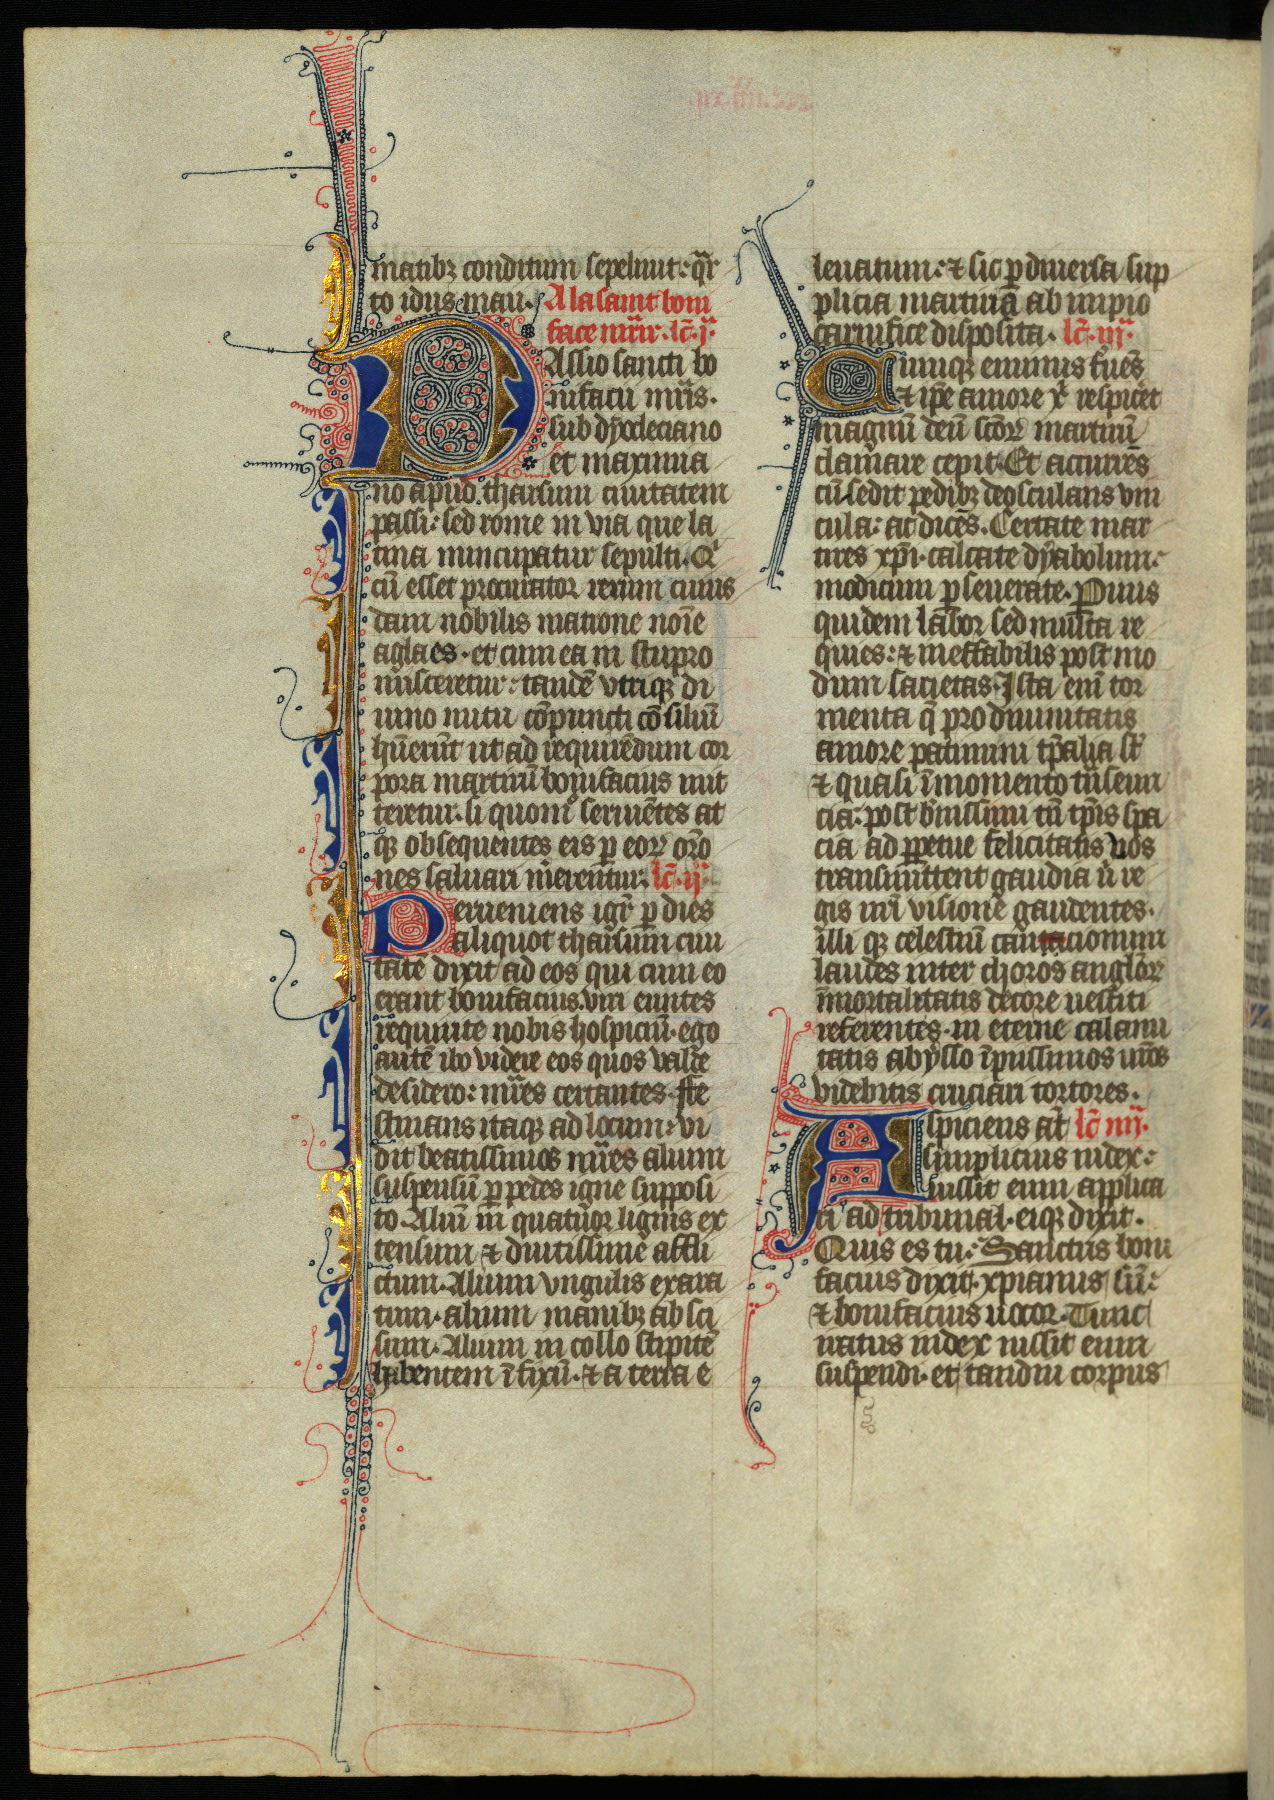 matibȝ conditum sepeliuit: qr̄
to idus maii. A la saint boni
face mr̄ir. lc̄. j.ᵃ
PAssio sancti bo
nifacii mr̄is.
sub dyocleciano
et maximia
no apud tharsum ciuitatem
passi: sed rome in via que la
tina nuncupatur sepulti. Qⁱ
cū esset procurator rerum cuius
dam nobilis matrone noīe
aglaes. et cum ea in stupro
misceretur: tandē vtriqꝫ di
uino nutu cōpuncti cōsiliū
hūerūt ut ad requirēdum cor
pora martirū bonifacius mit
teretur. si quom̄ seruiētes at
qꝫ obsequentes eis p eoꝝ or̄o
nes saluari mererentur. lc̄. ij.ᵃ
Perueniens igr̄ p dies
aliquot tharsum ciui
tate dixit ad eos qui cum eo
erant bonifacius. viri euntes
requirite nobis hospiciū. ego
autē ibo videre eos quos valde
desidero: mr̄es certantes. ffe
stinans itaqꝫ ad locum: vi
dit beatissimos mr̄es alium
suspensū p pedes igne supposi
to. Aliū in quatuor lignis ex
tensum ⁊ diutissime affli
ctum. Alium vngulis exara
tum. alium manibȝ absci
sum. Alium in collo stipitē
habentem īfixū. ⁊ a terra e
leuatum: ⁊ sic p diuersa sup
plicia martiria ab impio
carnifice disposita. lc̄. iij.ᵃ
Cumqꝫ eminus fuēs
⁊ ip̄e amore xⁱ respicēt
magnū deū sc̄oꝝ martirū
clamare cepit. Et accurrēs
cū sedit pedibȝ deosculans vin
cula: ac dicēs. Certate mar
tires xp̄i. calcate dyabolum:
modicum pseuerate. Paruus
quidem labor sed multa re
quies: ⁊ ineffabilis post mo
dum sacietas. Ista enī tor
menta q̄ pro diuinitatis
amore patimini tp̄alia st̄
⁊ quasi ī momento tn̄seun
cia: post b̄uissimi tn̄ tp̄is spa
cia ad ppetue felicitatis vos
transmittent gaudia ūi re
gis mr̄i visione gaudentes.
illi qꝫ celestiū cantacionum
laudes inter choros angloꝝ
īmortalitatis decore uestiti
referentes. in eterne calami
tatis abysso īpiissimos ur̄os
videbitis cruciari tortores.
Aspiciens at̄ lc̄ iiij.ᵃ
simplicius iudex:
iussit eum applica
ri ad tribunal. eiqꝫ dixit.
Quis es tu: Sanctus boni
facius dixit. xpianus sū:
⁊ bonifacius uocor. Tunc
iratus iudex iussit eum
suspendi. et tandiu corpus